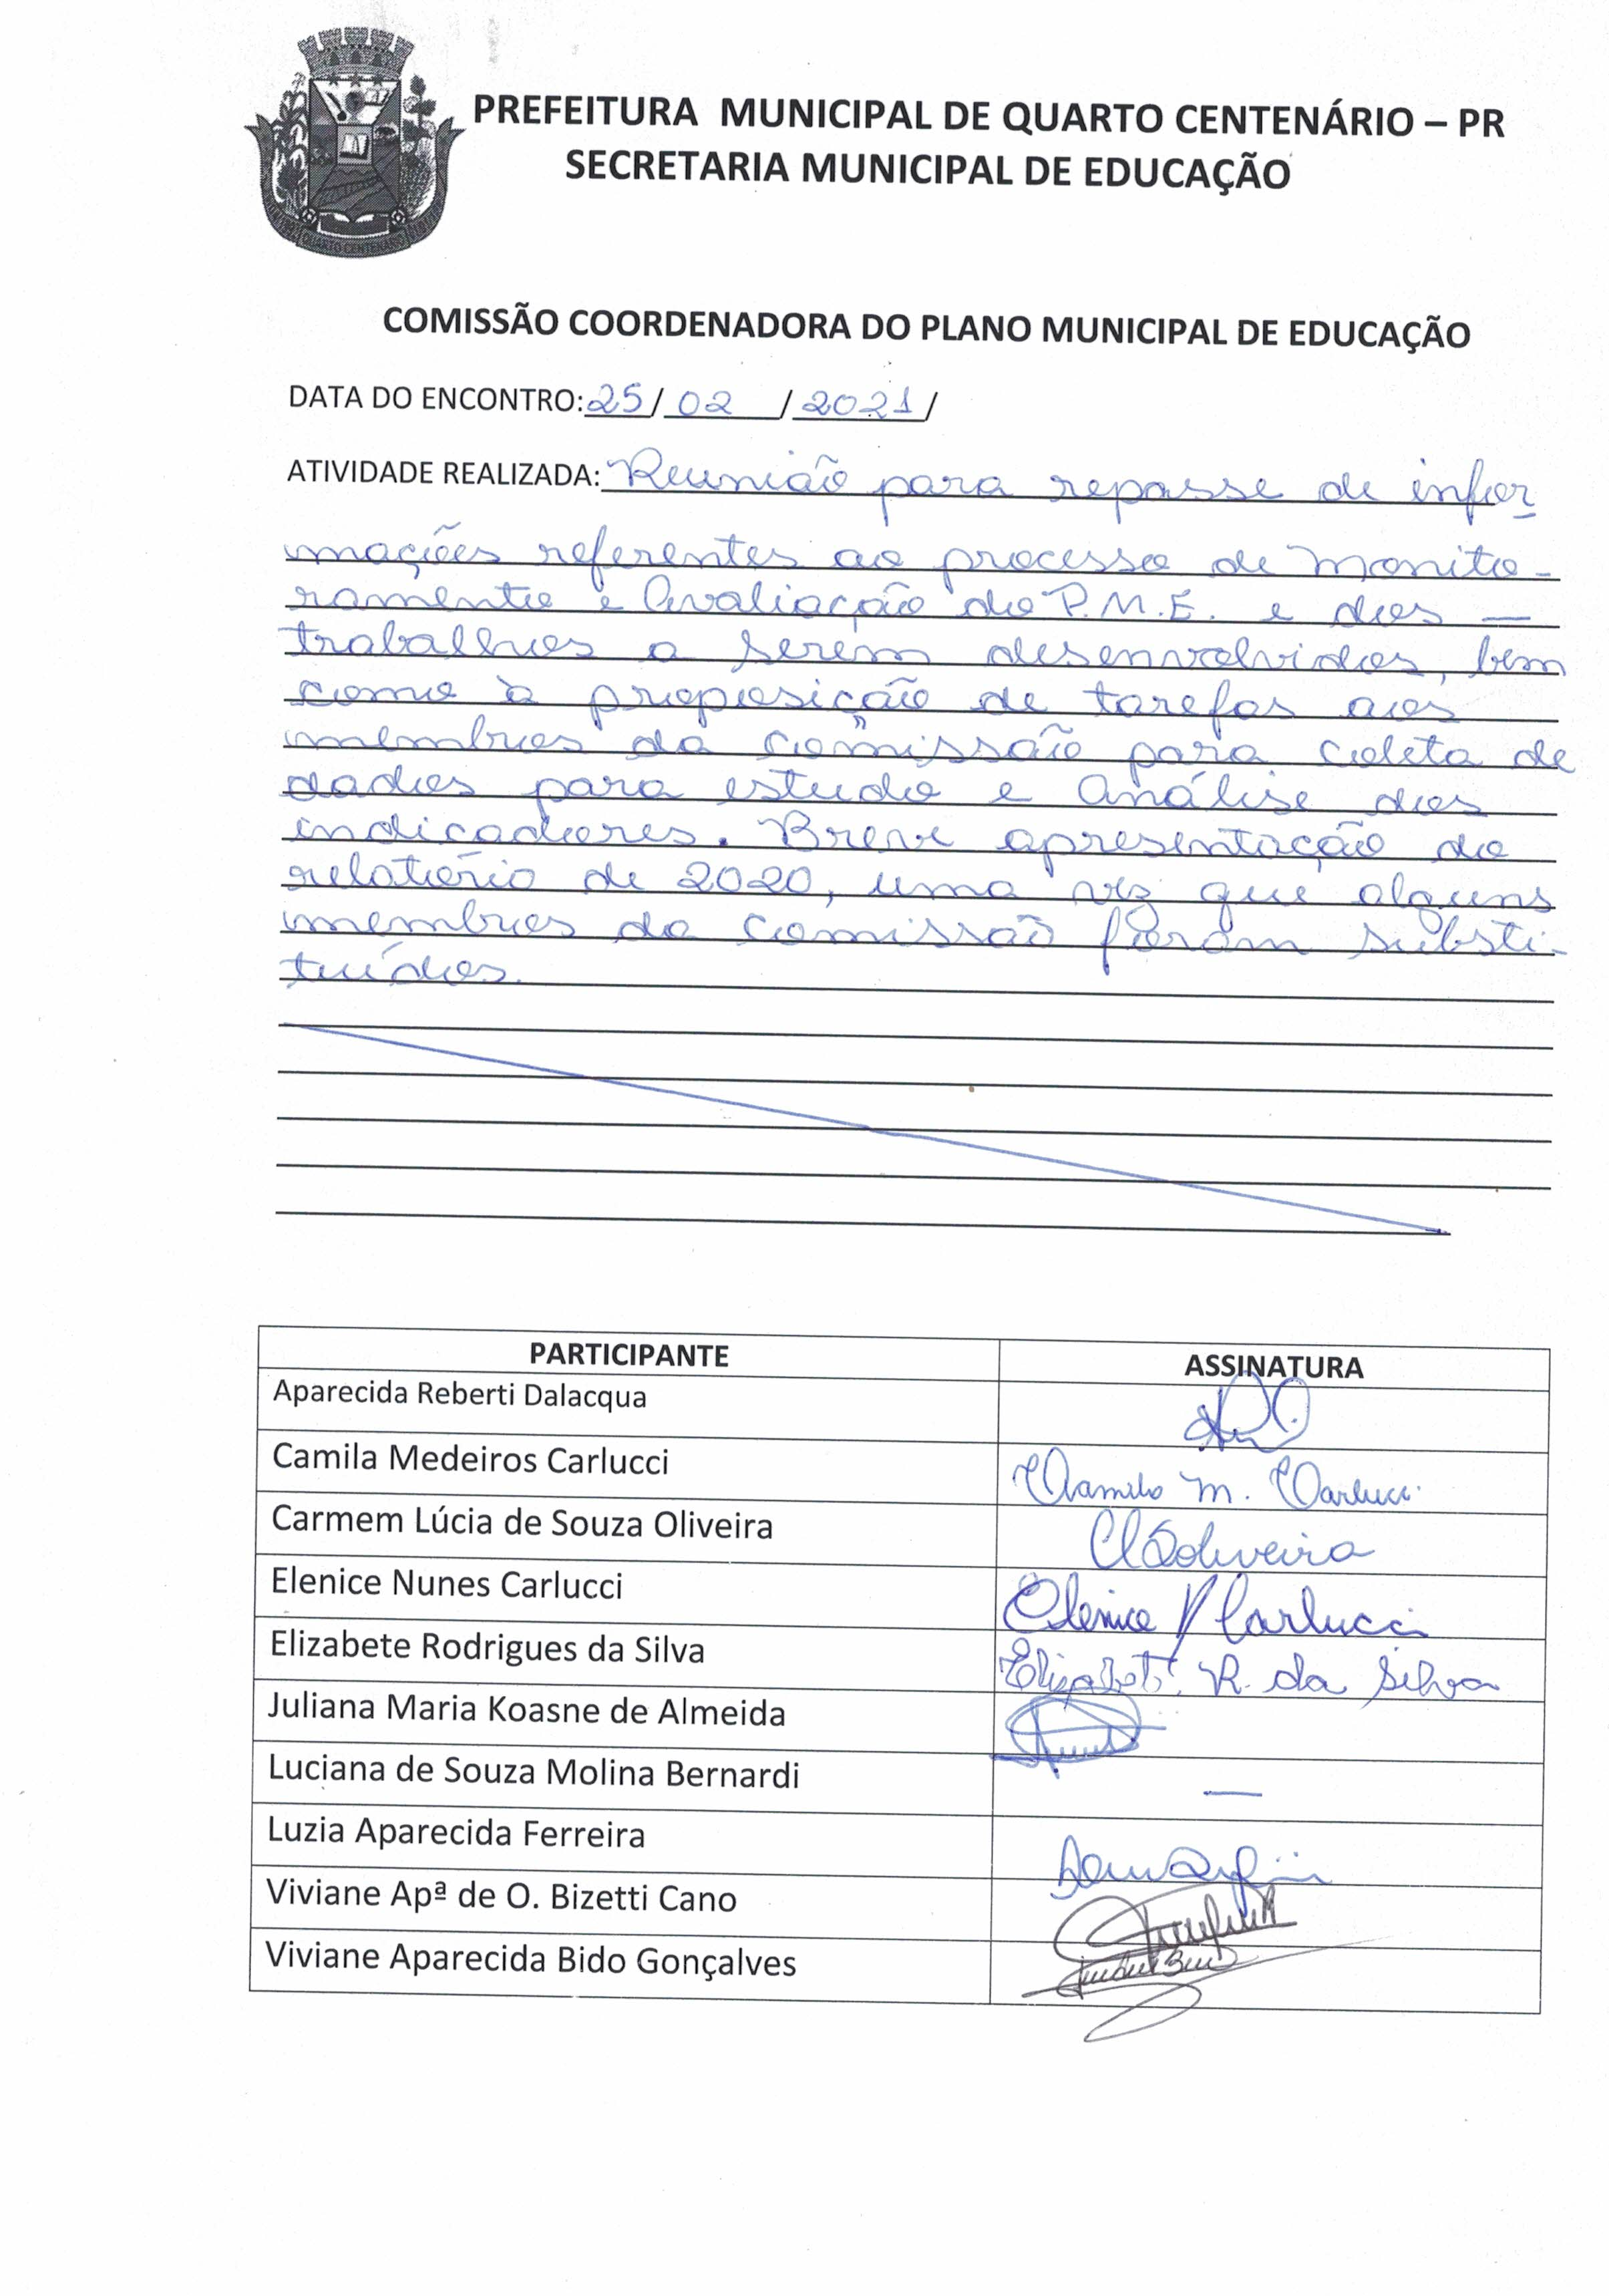 QUARTO CENTENÁRIO
PREFEITURA MUNICIPAL DE QUARTO CENTENÁRIO – PR
SECRETARIA MUNICIPAL DE EDUCAÇÃO
COMISSÃO COORDENADORA DO PLANO MUNICIPAL DE EDUCAÇÃO
DATA DO ENCONTRO: 25/ 02 / 2021 /
ATIVIDADE REALIZADA: Reunião para repasse de infor
mações referentes ao processo de monito-
ramento e Avaliação do P.M.E. e dos —
trabalhos a serem desenvolvidos, bem
como à proposição de tarefas aos
membros da comissão para coleta de
dados para estudo e análise dos
indicadores. Breve apresentação do
relatório de 2020, uma vez que alguns
membros da comissão foram substi-
tuídos.
PARTICIPANTE ASSINATURA
Aparecida Reberti Dalacqua
Camila Medeiros Carlucci Camila M. Carlucci
Carmem Lúcia de Souza Oliveira CLSOliveira
Elenice Nunes Carlucci Elenice N Carlucci
Elizabete Rodrigues da Silva Elizabete R. da Silva
Juliana Maria Koasne de Almeida
Luciana de Souza Molina Bernardi —
Luzia Aparecida Ferreira
Viviane Apª de O. Bizetti Cano
Viviane Aparecida Bido Gonçalves